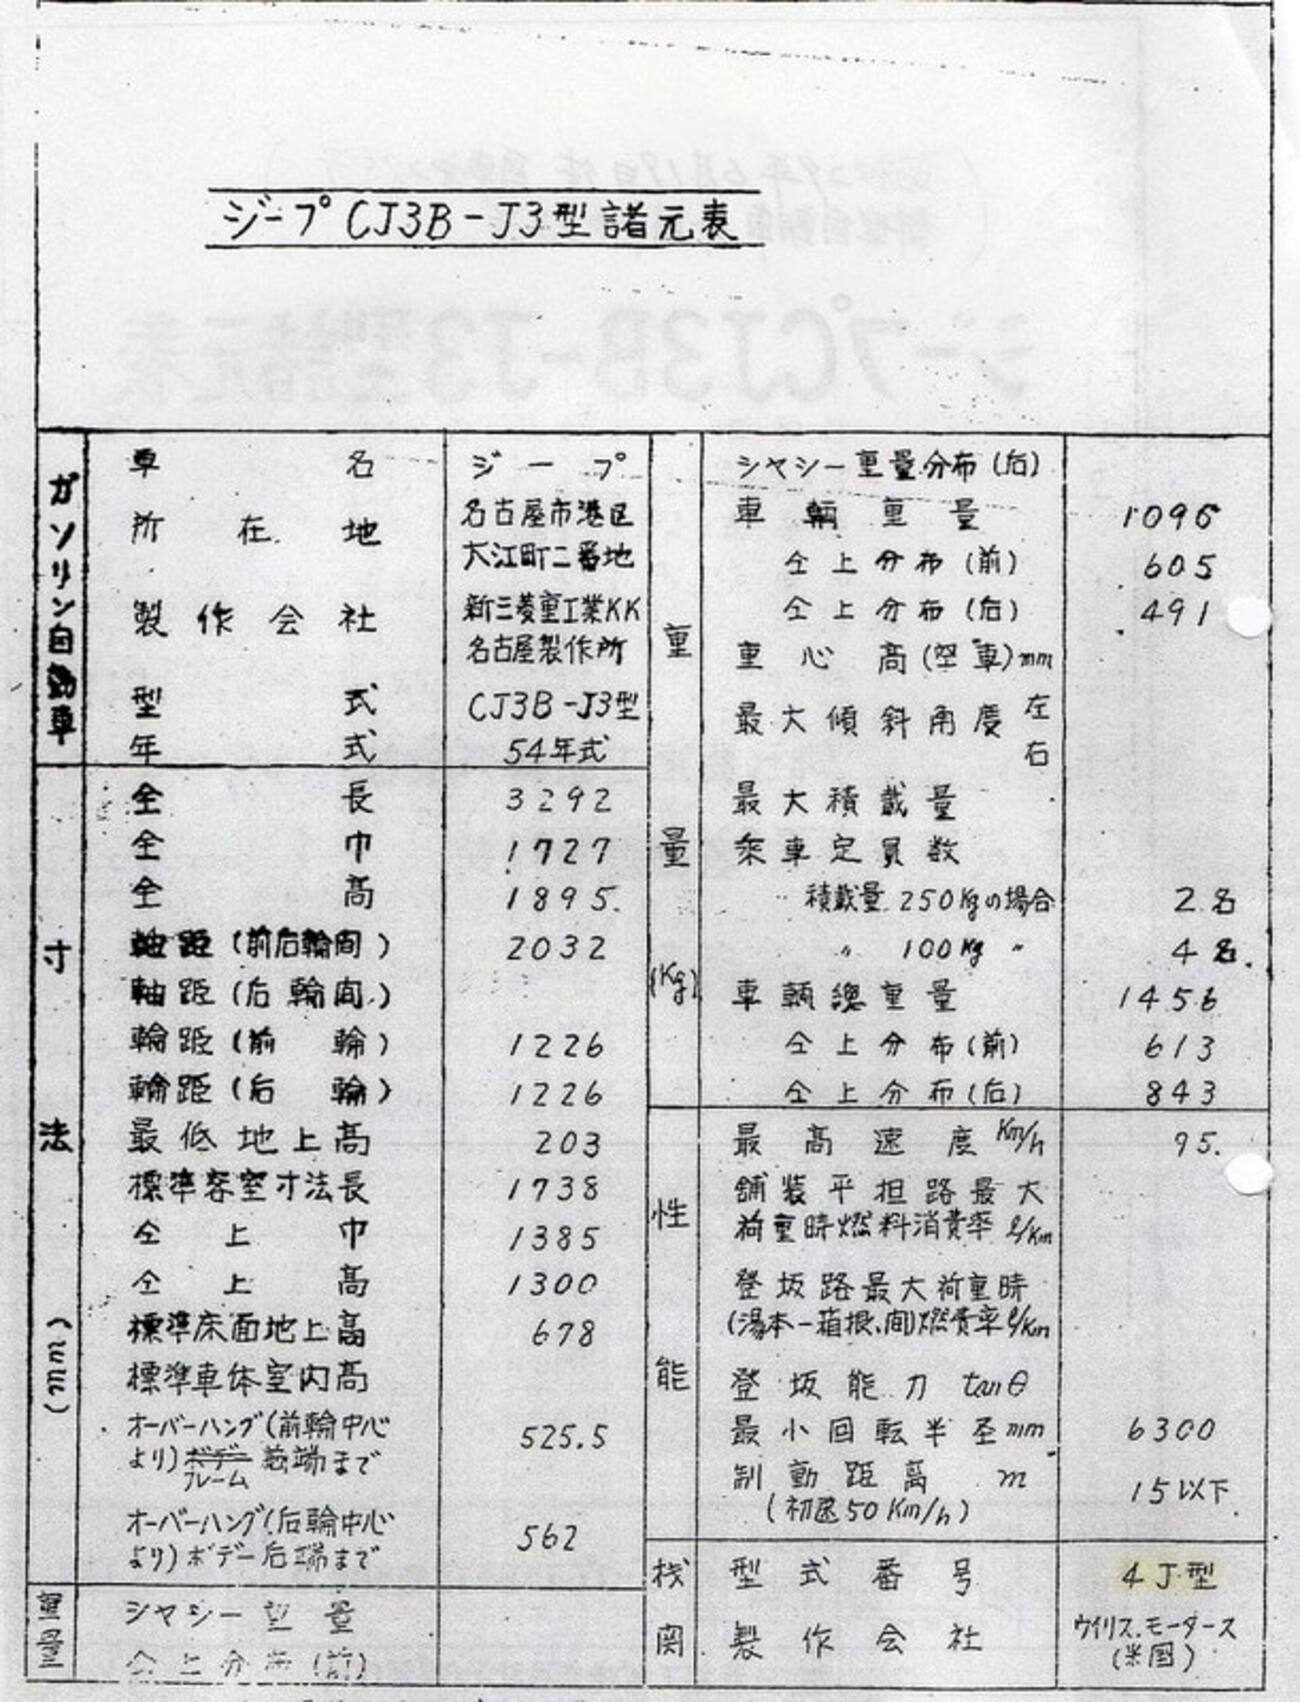 ジープCJ3B-J3型諸元表
ガソリン自動車
車名 ジープ
所在地 名古屋市港区
大江町二番地
製作会社 新三菱重工業KK
名古屋製作所
型式 CJ3B-J3型
年式 54年式
寸法(mm)
全長 3292
全巾 1727
全高 1895.
軸距(前后輪間) 2032
軸距(后輪間)
輪距(前輪) 1226
輪距(后輪) 1226
最低地上高 203
標準客室寸法長 1738
仝上巾 1385
仝上高 1300
標準床面地上高 678
標準車体室内高
オーバーハング(前輪中心
より)ボデー前端まで 525.5
フレーム
オーバーハング(后輪中心
より)ボデー后端まで 562
重量
シャシー重量
仝上分布(前)
重量(Kg)
シャシー重量分布(后)
車輌重量 1096
仝上分布(前) 605
仝上分布(后) 491
重心高(空車)mm
最大傾斜角度 左
右
最大積載量
乗車定員数
積載量250Kgの場合 2名
〃 100Kg 〃 4名.
車輌總重量 1456
仝上分布(前) 613
仝上分布(后) 843
性能
最高速度 Km/h 95.
舗装平担路最大
荷重時燃料消費率 ℓ/Km
登坂路最大荷重時
(湯本-箱根間)燃費率ℓ/Km
登坂能力 tanθ
最小回転半至mm 6300
制動距离 m 15以下
(初速50Km/h)
桟関
型式番号 4J型
製作会社 ウイリス.モータース
(米国)